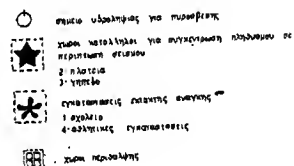 σημείο υδροληψίας για πυρόσβεση
χώροι κατάλληλοι για συγκέντρωση πληθυσμού σε
περίπτωση σεισμού
2· πλατεία
3· γήπεδο
εγκαταστάσεις έκτακτης ανάγκης
1 σχολείο
4· αθλητικές εγκαταστάσεις
χώροι περίθαλψης